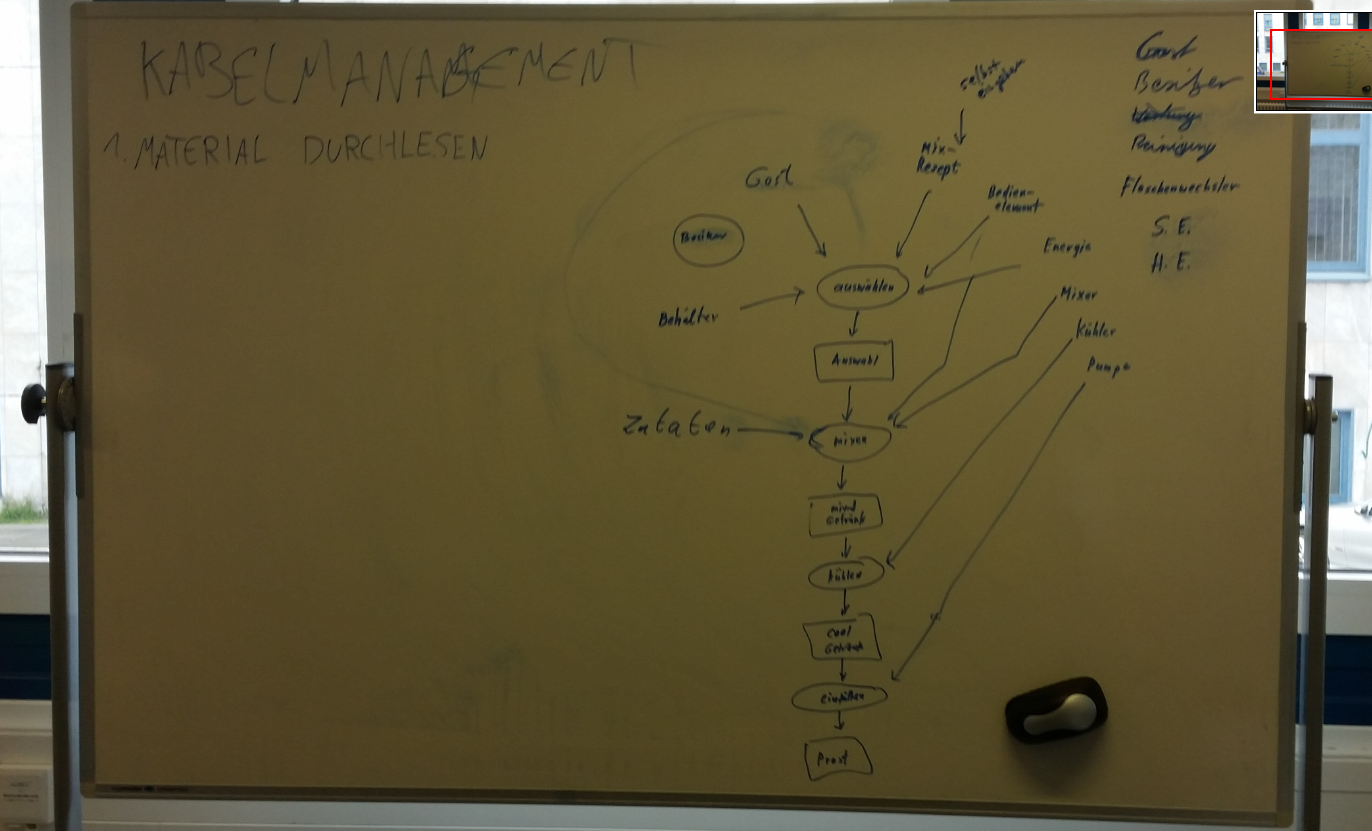 KABELMANAGEMENT
1. MATERIAL DURCHLESEN
selbst
eingeben
Mix-
Rezept
Gast
Bedien-
element
Besitzer
Energie
auswählen
Behälter
Mixer
Kühler
Auswahl
Pumpe
Zutaten
mixen
mixed
Getränk
kühlen
cool
Getränk
einfüllen
Prost
Gast
Besitzer
Reinigung
Flaschenwechsler
S. E.
H. E.